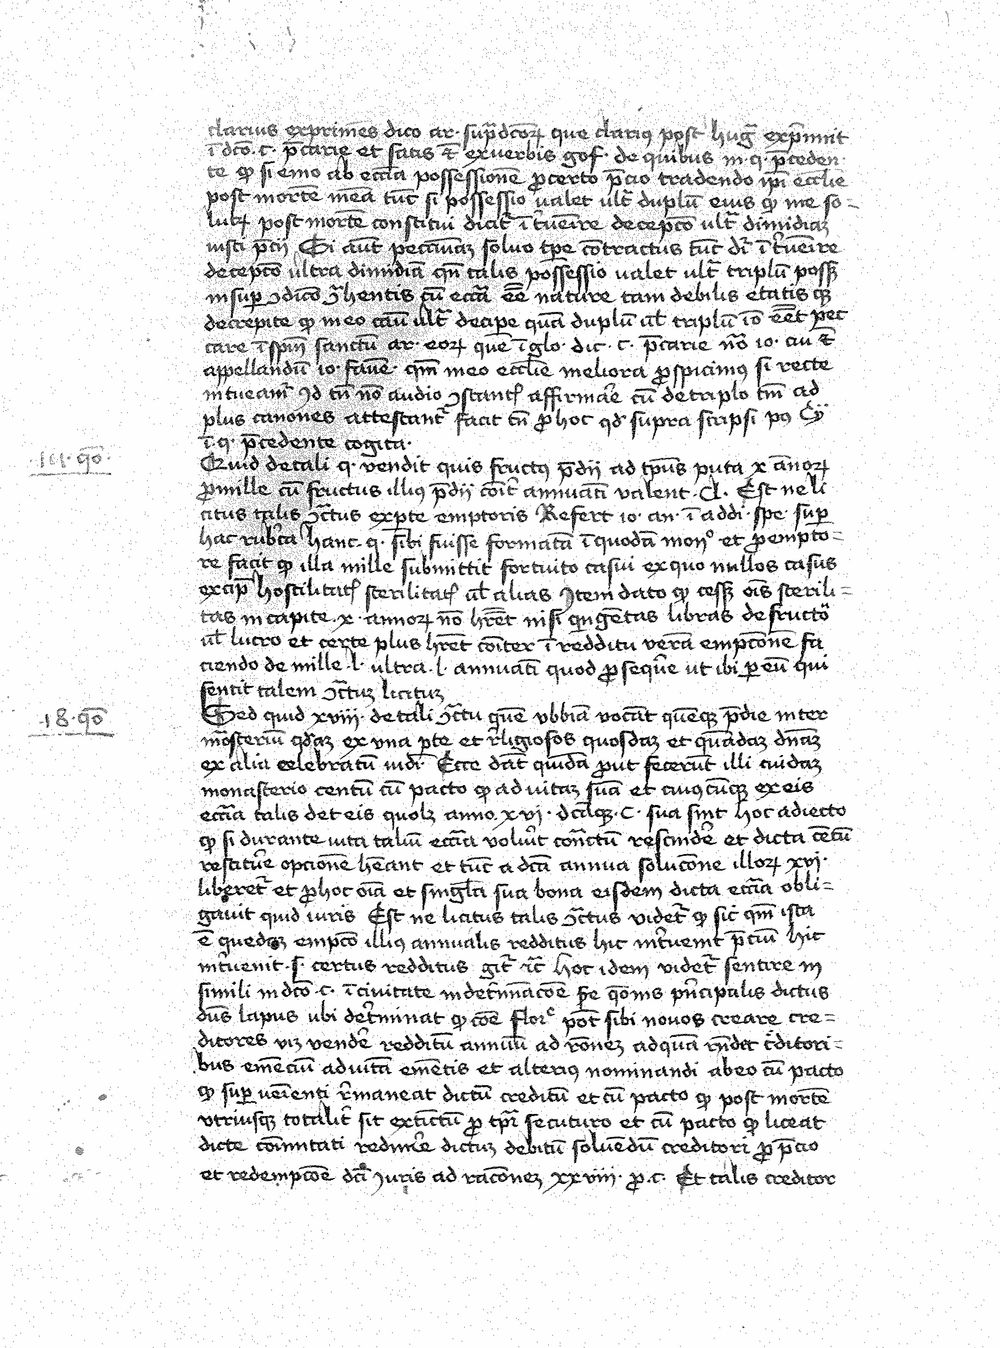 clarius exprimēs dico ar· sup̄dcōꝝ que clariꝰ post huḡ exp̄mit
ī dcō· c· p̄carie et satis ē ex verbis gof· de quibus in q· p̄ceden·
te ꝙ si emo ab ecc̄ia possessionē ꝓ certo p̄cio tradendo ip̄i ecclie
post mortē meā tūc si possessio valet ult̄ duplū eius ꝙ me so-
lutꝝ post mortē constitui dicit̄ īt̄uēire decepcō ult̄ dimidiaꝫ
iusti p̄cii Si aūt pecuniaꝫ soluo tp̄e cōtractus tūc dr̄ īt̄uēire
decepcō ultra dimidiā qn̄ talis possessio valet ult̄ triplū possꝫ
insuꝑ ꝯdicō ꝯ̄hentis cū ecc̄ia ēe nature tam debilis etatis qꝫ
decrepite ꝙ in eo casu ult̄ decipe quā duplū ul̄ triplū iō eēt pec
care ī spm̄ sanctū ar· eoꝝ que ī glo· dic· c· p̄carie nō io· an ē
appellandū io· fauē· qm̄ in eo ecclie meliora ꝓspicimꝰ si recte
intueam̄ Id tn̄ nō audio ꝯstant̄ affirmare cū de triplo tm̄ ad
plus canones attestant̄ facit tn̄ ꝓ hoc qđ supra scripsi
ī q· p̄cedente cogita·
·17· qō·
Quid de tali q· vendit quis fructꝰ p̄dii ad tp̄us puta x annoꝝ
ꝓ mille cū fructus illiꝰ p̄dii cōit̄ annuatī valent· cl· Est ne li
citus talis ꝯ̄ctus ex pte emptoris Refert io· an· ī addi· spe· suꝑ
hac rubrica hanc· q· sibi fuisse formatā ī quodā mon° et ꝓ empto-
re facit ꝙ illa mille submittit fortuito casui ex quo nullos casus
excip̄ hostilitat̄ sterilitat̄ ul̄ alias Item dato ꝙ cessꝫ oīs sterili-
tas in capite· x· annoꝝ nō hr̄et nisi qngētas libras de fructu
ul̄ lucro et certe plus hr̄et cōiter ī redditu verā empcōnē fa
ciendo de mille· l· ultra· l· annuatī quod ꝓsequr̄e ut ibi ꝑ eū qui
sentit talem ꝯ̄ctuꝫ licituꝫ
·18· qō·
Sed quid xviii· de tali ꝯ̄ctu quē vbbiā vocāt quēqꝫ p̄die inter
mōsteriū qđaꝫ ex vna pte et r̄ligiosos quosdaꝫ et quādaꝫ dnāꝫ
ex alia celebratū vidi Ecce dāt quidā ꝓut fecerūt illi cuidaꝫ
monasterio centū cū pacto ꝙ ad vitaꝫ suā et cuiꝰcūqꝫ ex eis
ecc̄ia talis det eis quolꝫ anno· xvi· · c· sua sint hoc adiecto
ꝙ si durante vita taliū ecc̄ia voluīt cōn̄ctū rescindē et dicta cētū
restitu̓e opcionē hēant et tūc a dcā annua solucōne illoꝝ xvi·
liberet̄ et ꝓ hoc oīa et singla sua bona eisdem dicta ecc̄ia obli-
gauit quid iuris Est ne licitus talis ꝯ̄ctus videt̄ ꝙ sic qm̄ ista
ē quedaꝫ empcō illiꝰ annualis redditus hic int̄uenit p̄ciū hic
int̄uenit· s· certus redditus git̄ ⁊c̄ hoc idem videt̄ sentire in
simili in dcō· c· ī ciuitate in det̄minacōe p̄e qōnis pn̄cipalis dictus
dn̄s lapus ubi det̄minat ꝙ cōe florᵉ pōt sibi nouos creare cre-
ditores vꝫ vendēr redditū annuū ad rōneꝫ ad quā r̄ndet c̄ditori-
bus emēciū ad vitā emētis et alteriꝰ nominandi ab eo cū pacto
ꝙ suꝑueīenti r̄maneat dictū creditū et cū pacto ꝙ post mortē
vtriusqꝫ totalit̄ sit extīctū ꝓ tp̄r secuturo et cū pacto ꝙ liceat
dicte cōmitati redimē dictuꝫ debitū soluēdū creditori ꝓ p̄cio
et redempcōe dc̄i Iuris ad racōneꝫ xxviii· ꝓ· c· Et talis creditor